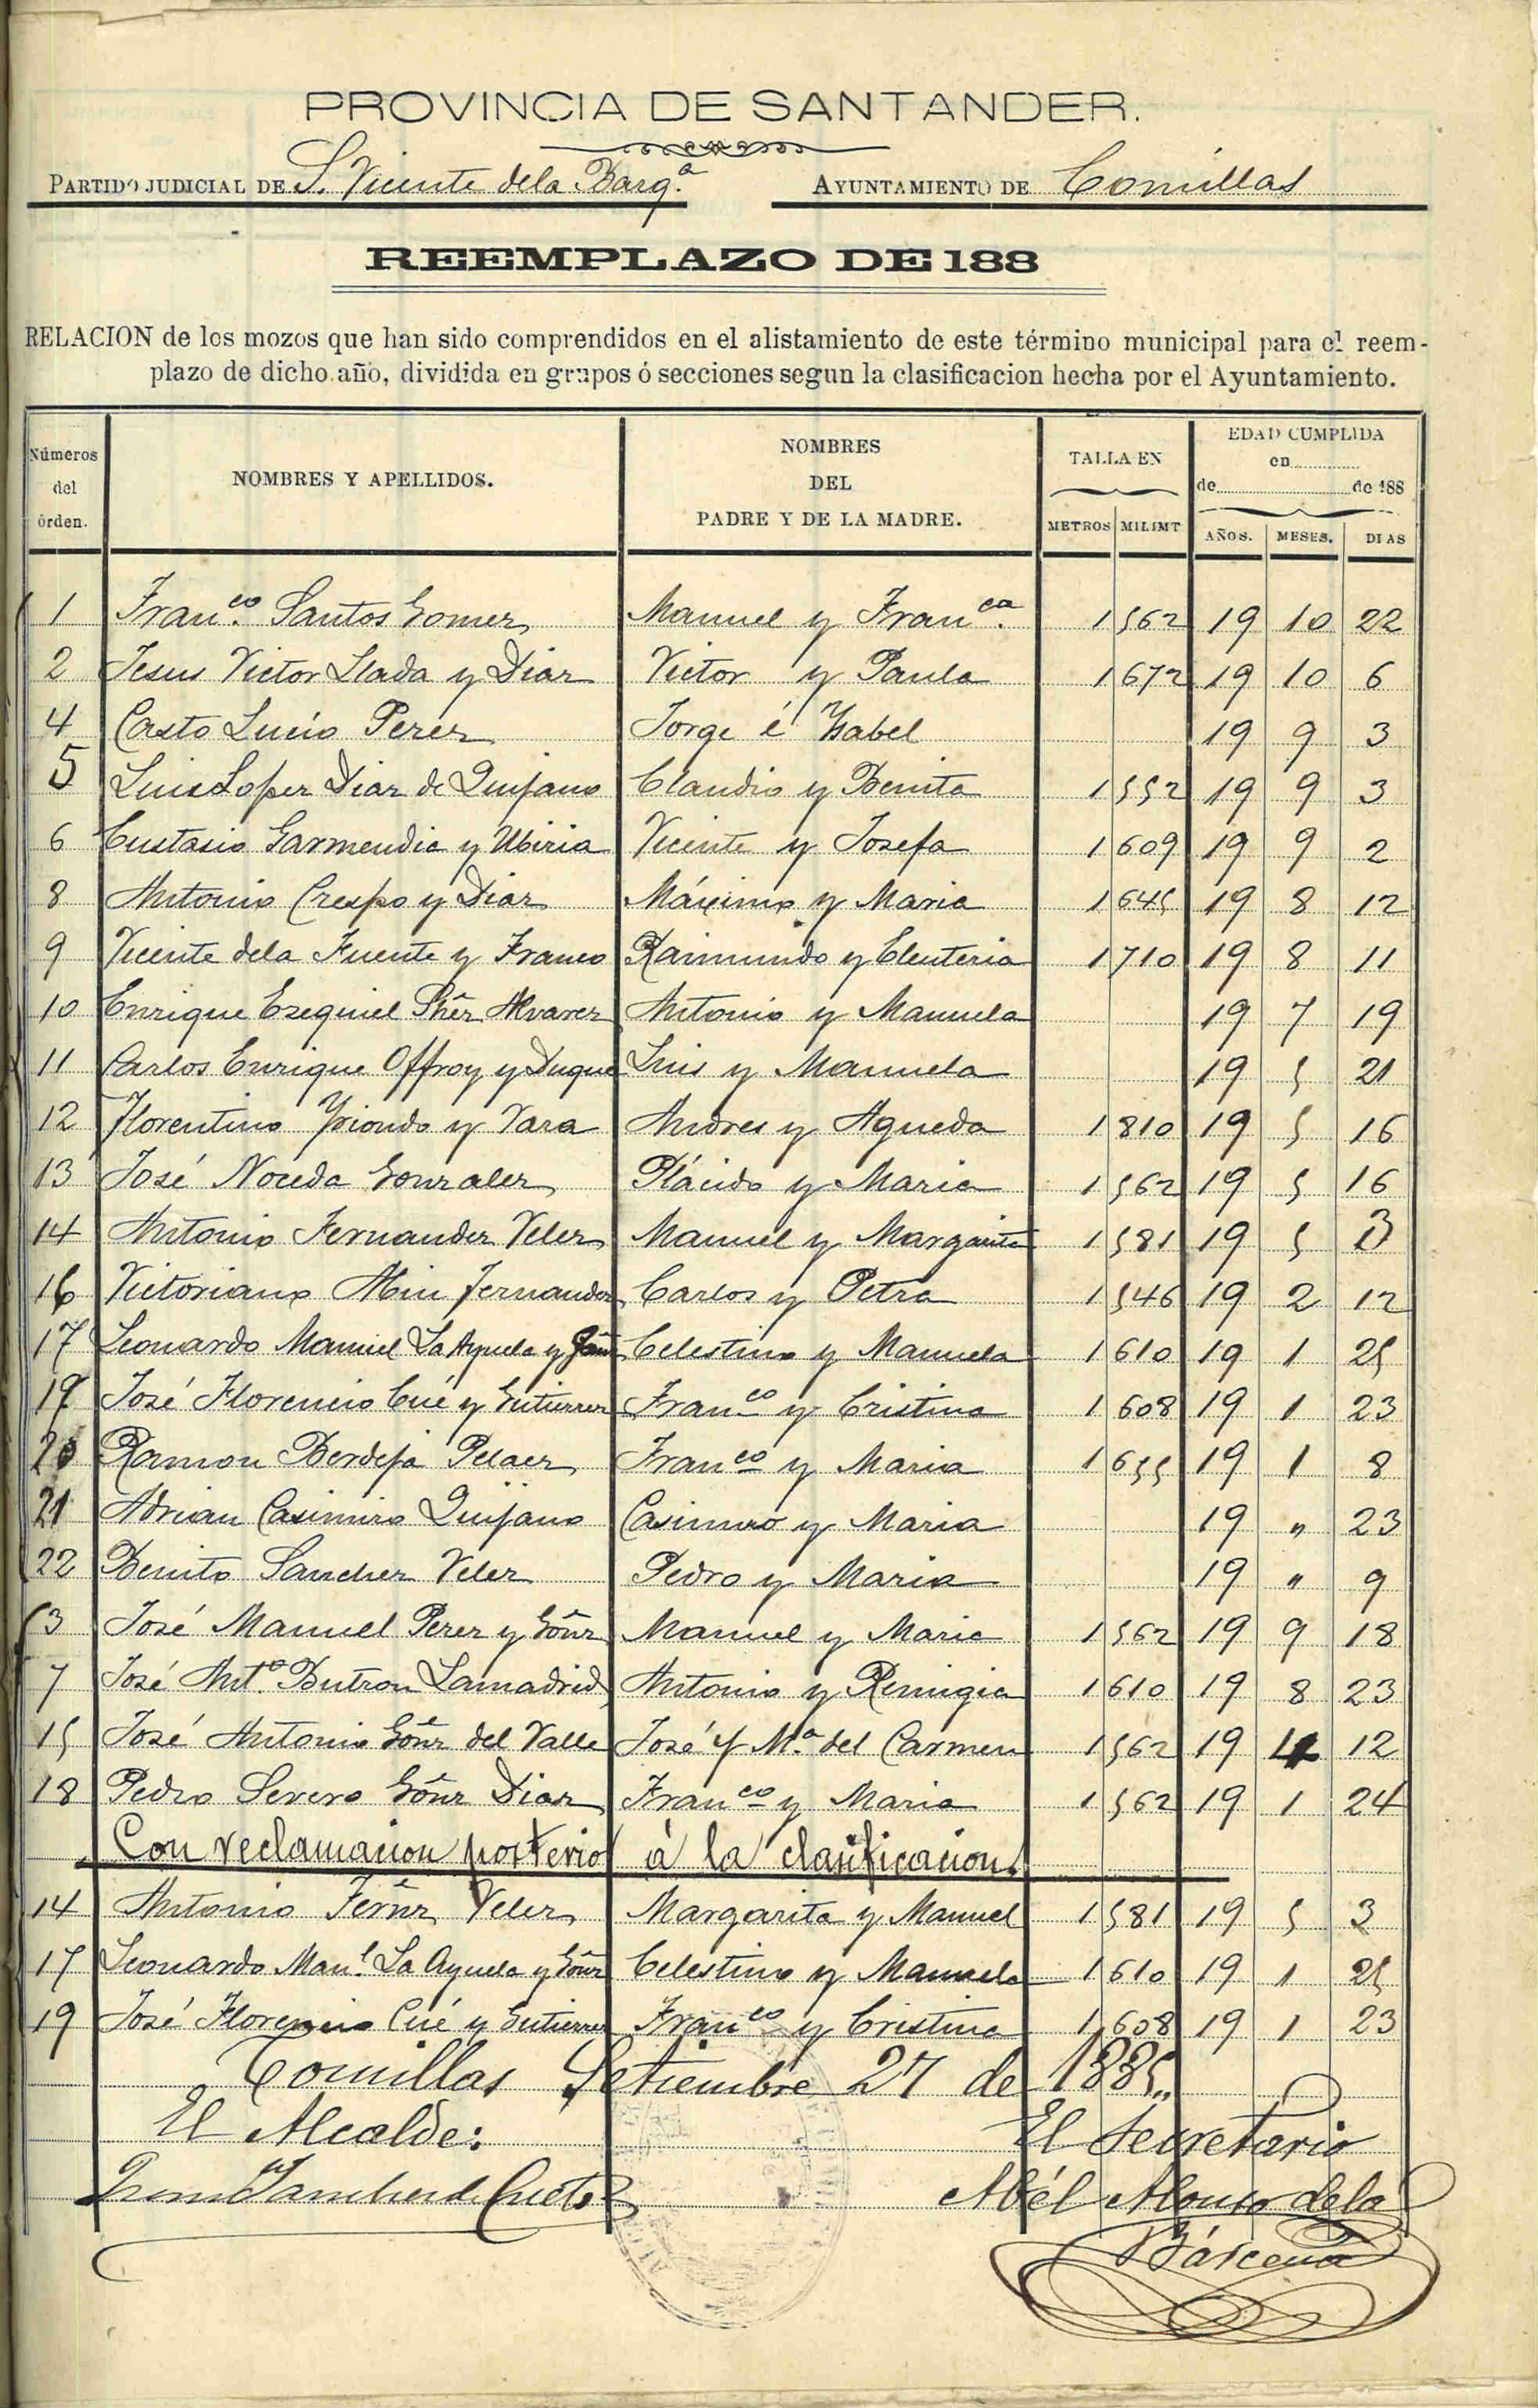 PROVINCIA DE SANTANDER.
PARTIDO JUDICIAL DE S. Vicente dela Barqª. AYUNTAMIENTO DE Comillas
REEMPLAZO DE 188
RELACION de los mozos que han sido comprendidos en el alistamiento de este término municipal para el reem-
plazo de dicho año, dividida en grupos ó secciones segun la clasificacion hecha por el Ayuntamiento.
Números del órden. NOMBRES Y APELLIDOS. NOMBRES DEL PADRE Y DE LA MADRE. TALLA EN METROS MILIMT EDAD CUMPLIDA en de de 188 AÑOS. MESES. DIAS
1 Franco. Santos Gomez Manuel y Franca. 1 562 19 10 22
2 Jesus Victor Llada y Diaz Victor y Paula 1 672 19 10 6
4 Casto Lucio Perez Jorge é Ysabel 19 9 3
5 Luis Lopez Diaz de Quijano Claudio y Benita 1 552 19 9 3
6 Eustasio Garmendia y Ubiria Vicente y Josefa 1 609 19 9 2
8 Antonio Crespo y Diaz Máximo y Maria 1 645 19 8 12
9 Vicente dela Fuente y Franco Raimundo y Eleuteria 1 710 19 8 11
10 Enrique Ezequiel Shêz Alvarez Antonio y Manuela 19 7 19
11 Carlos Enrique Offroy y Duque Luis y Manuela 19 5 21
12 Florentino Yriondo y Vara Andres y Agueda 1 810 19 5 16
13 José Noceda Gonzalez Plácido y Maria 1 562 19 5 16
14 Antonio Fernandez Velez Manuel y Margarita 1 581 19 5 3
16 Victoriano Abin Fernandez Carlos y Petra 1 546 19 2 12
17 Leonardo Manuel La Ayuela y Celestino y Manuela 1 610 19 1 25
19 José Florencio Cué y Gutierrez Franco y Cristina 1 608 19 1 23
20 Ramon Berdeja Pelaez Franco y Maria 1 655 19 1 8
21 Adrian Casimiro Quijano Casimiro y Maria 19 " 23
22 Benito Sanchez Velez Pedro y Maria 19 " 9
3 José Manuel Perez y Gônz Manuel y Maria 1 562 19 9 18
7 José Antº. Butron Lamadrid Antonio y Remigia 1 610 19 8 23
15 José Antonio Gônz del Valle José y Mª. del Carmen 1 562 19 4 12
18 Pedro Severo Gônz Diaz Franco y Maria 1 562 19 1 24
Con reclamacion posterior á la clasificacion.
14 Antonio Fernz Velez Margarita y Manuel 1 581 19 5 3
17 Leonardo Manl. La Ayuela y Gônz Celestino y Manuela 1 610 19 1 25
19 José Florencio Cué y Gutierrez Franco y Cristina 1 608 19 1 23
Comillas Setiembre 27 de 1885.
El Alcalde: El Secretario
Sanchez de Cueto Abél Alonso dela
Bárcena